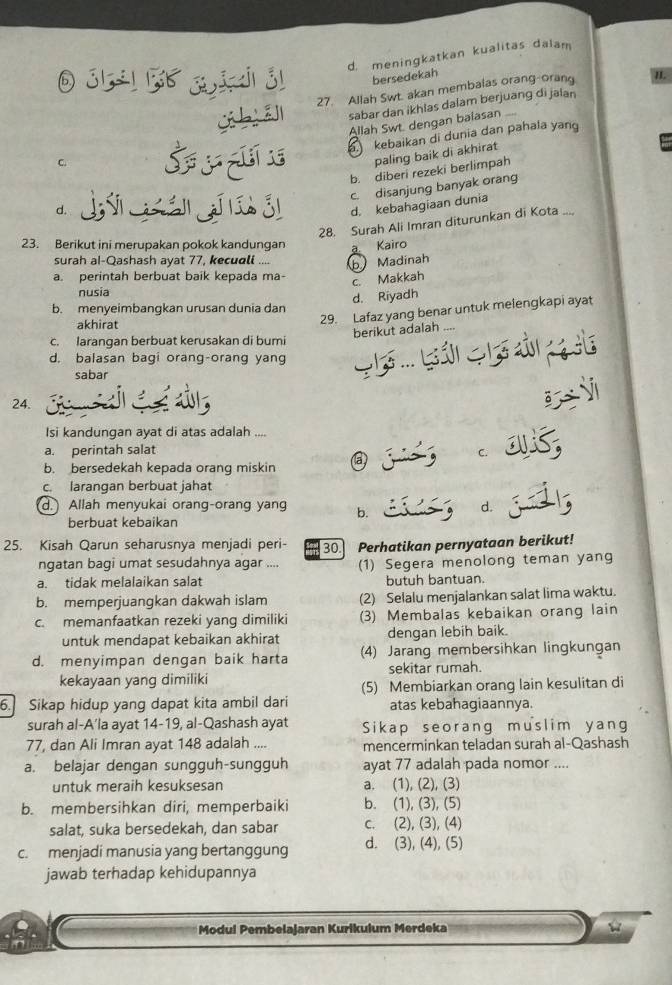 b. إِنَّ الْمُبَذِّرِيْنَ كَانُوْٓا اِخْوَانَ
الشَّيٰطِيْنِ
c. قَدْ اَفْلَحَ مَنْ تَزَكّٰى
d. اِنَّ هٰذَا لَفِى الصُّحُفِ الْاُوْلٰى
23. Berikut ini merupakan pokok kandungan
surah al-Qashash ayat 77, kecuali ....
a. perintah berbuat baik kepada ma-
nusia
b. menyeimbangkan urusan dunia dan
akhirat
c. larangan berbuat kerusakan di bumi
d. balasan bagi orang-orang yang
sabar
24. وَاللّٰهُ يُحِبُّ الْمُحْسِنِيْنَ
Isi kandungan ayat di atas adalah ....
a. perintah salat
b. bersedekah kepada orang miskin
c. larangan berbuat jahat
d. Allah menyukai orang-orang yang
berbuat kebaikan
25. Kisah Qarun seharusnya menjadi peri-
ngatan bagi umat sesudahnya agar ....
a. tidak melalaikan salat
b. memperjuangkan dakwah islam
c. memanfaatkan rezeki yang dimiliki
untuk mendapat kebaikan akhirat
d. menyimpan dengan baik harta
kekayaan yang dimiliki
6. Sikap hidup yang dapat kita ambil dari
surah al-A'la ayat 14-19, al-Qashash ayat
77, dan Ali Imran ayat 148 adalah ....
a. belajar dengan sungguh-sungguh
untuk meraih kesuksesan
b. membersihkan diri, memperbaiki
salat, suka bersedekah, dan sabar
c. menjadi manusia yang bertanggung
jawab terhadap kehidupannya
d. meningkatkan kualitas dalam
bersedekah
27. Allah Swt. akan membalas orang-orang
sabar dan ikhlas dalam berjuang di jalan
Allah Swt. dengan balasan ....
a. kebaikan di dunia dan pahala yang
paling baik di akhirat
b. diberi rezeki berlimpah
c. disanjung banyak orang
d. kebahagiaan dunia
28. Surah Ali Imran diturunkan di Kota ....
a. Kairo
b. Madinah
c. Makkah
d. Riyadh
29. Lafaz yang benar untuk melengkapi ayat
berikut adalah ....
فَاٰتٰىهُمُ اللّٰهُ ثَوَابَ الدُّنْيَا ... ثَوَابِ
الْاٰخِرَةِ
a. وَحُسْنَ
c. وَكَذٰلِكَ
b. وَحَسُنَتْ
d. وَاَحْسَنَ
Soal HOTS 30. Perhatikan pernyataan berikut!
(1) Segera menolong teman yang
butuh bantuan.
(2) Selalu menjalankan salat lima waktu.
(3) Membalas kebaikan orang lain
dengan lebih baik.
(4) Jarang membersihkan lingkungan
sekitar rumah.
(5) Membiarkan orang lain kesulitan di
atas kebahagiaannya.
Sikap seorang muslim yang
mencerminkan teladan surah al-Qashash
ayat 77 adalah pada nomor ....
a. (1), (2), (3)
b. (1), (3), (5)
c. (2), (3), (4)
d. (3), (4), (5)
II.
Modul Pembelajaran Kurikulum Merdeka